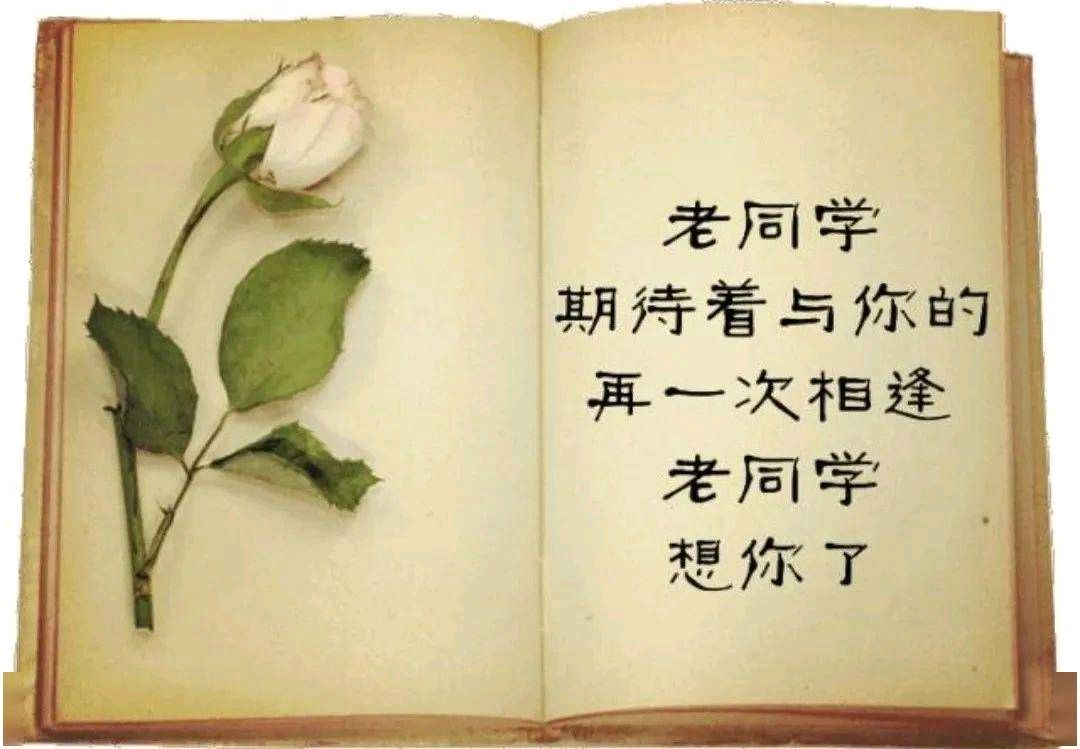 老同学
期待着与你的
再一次相逢
老同学
想你了